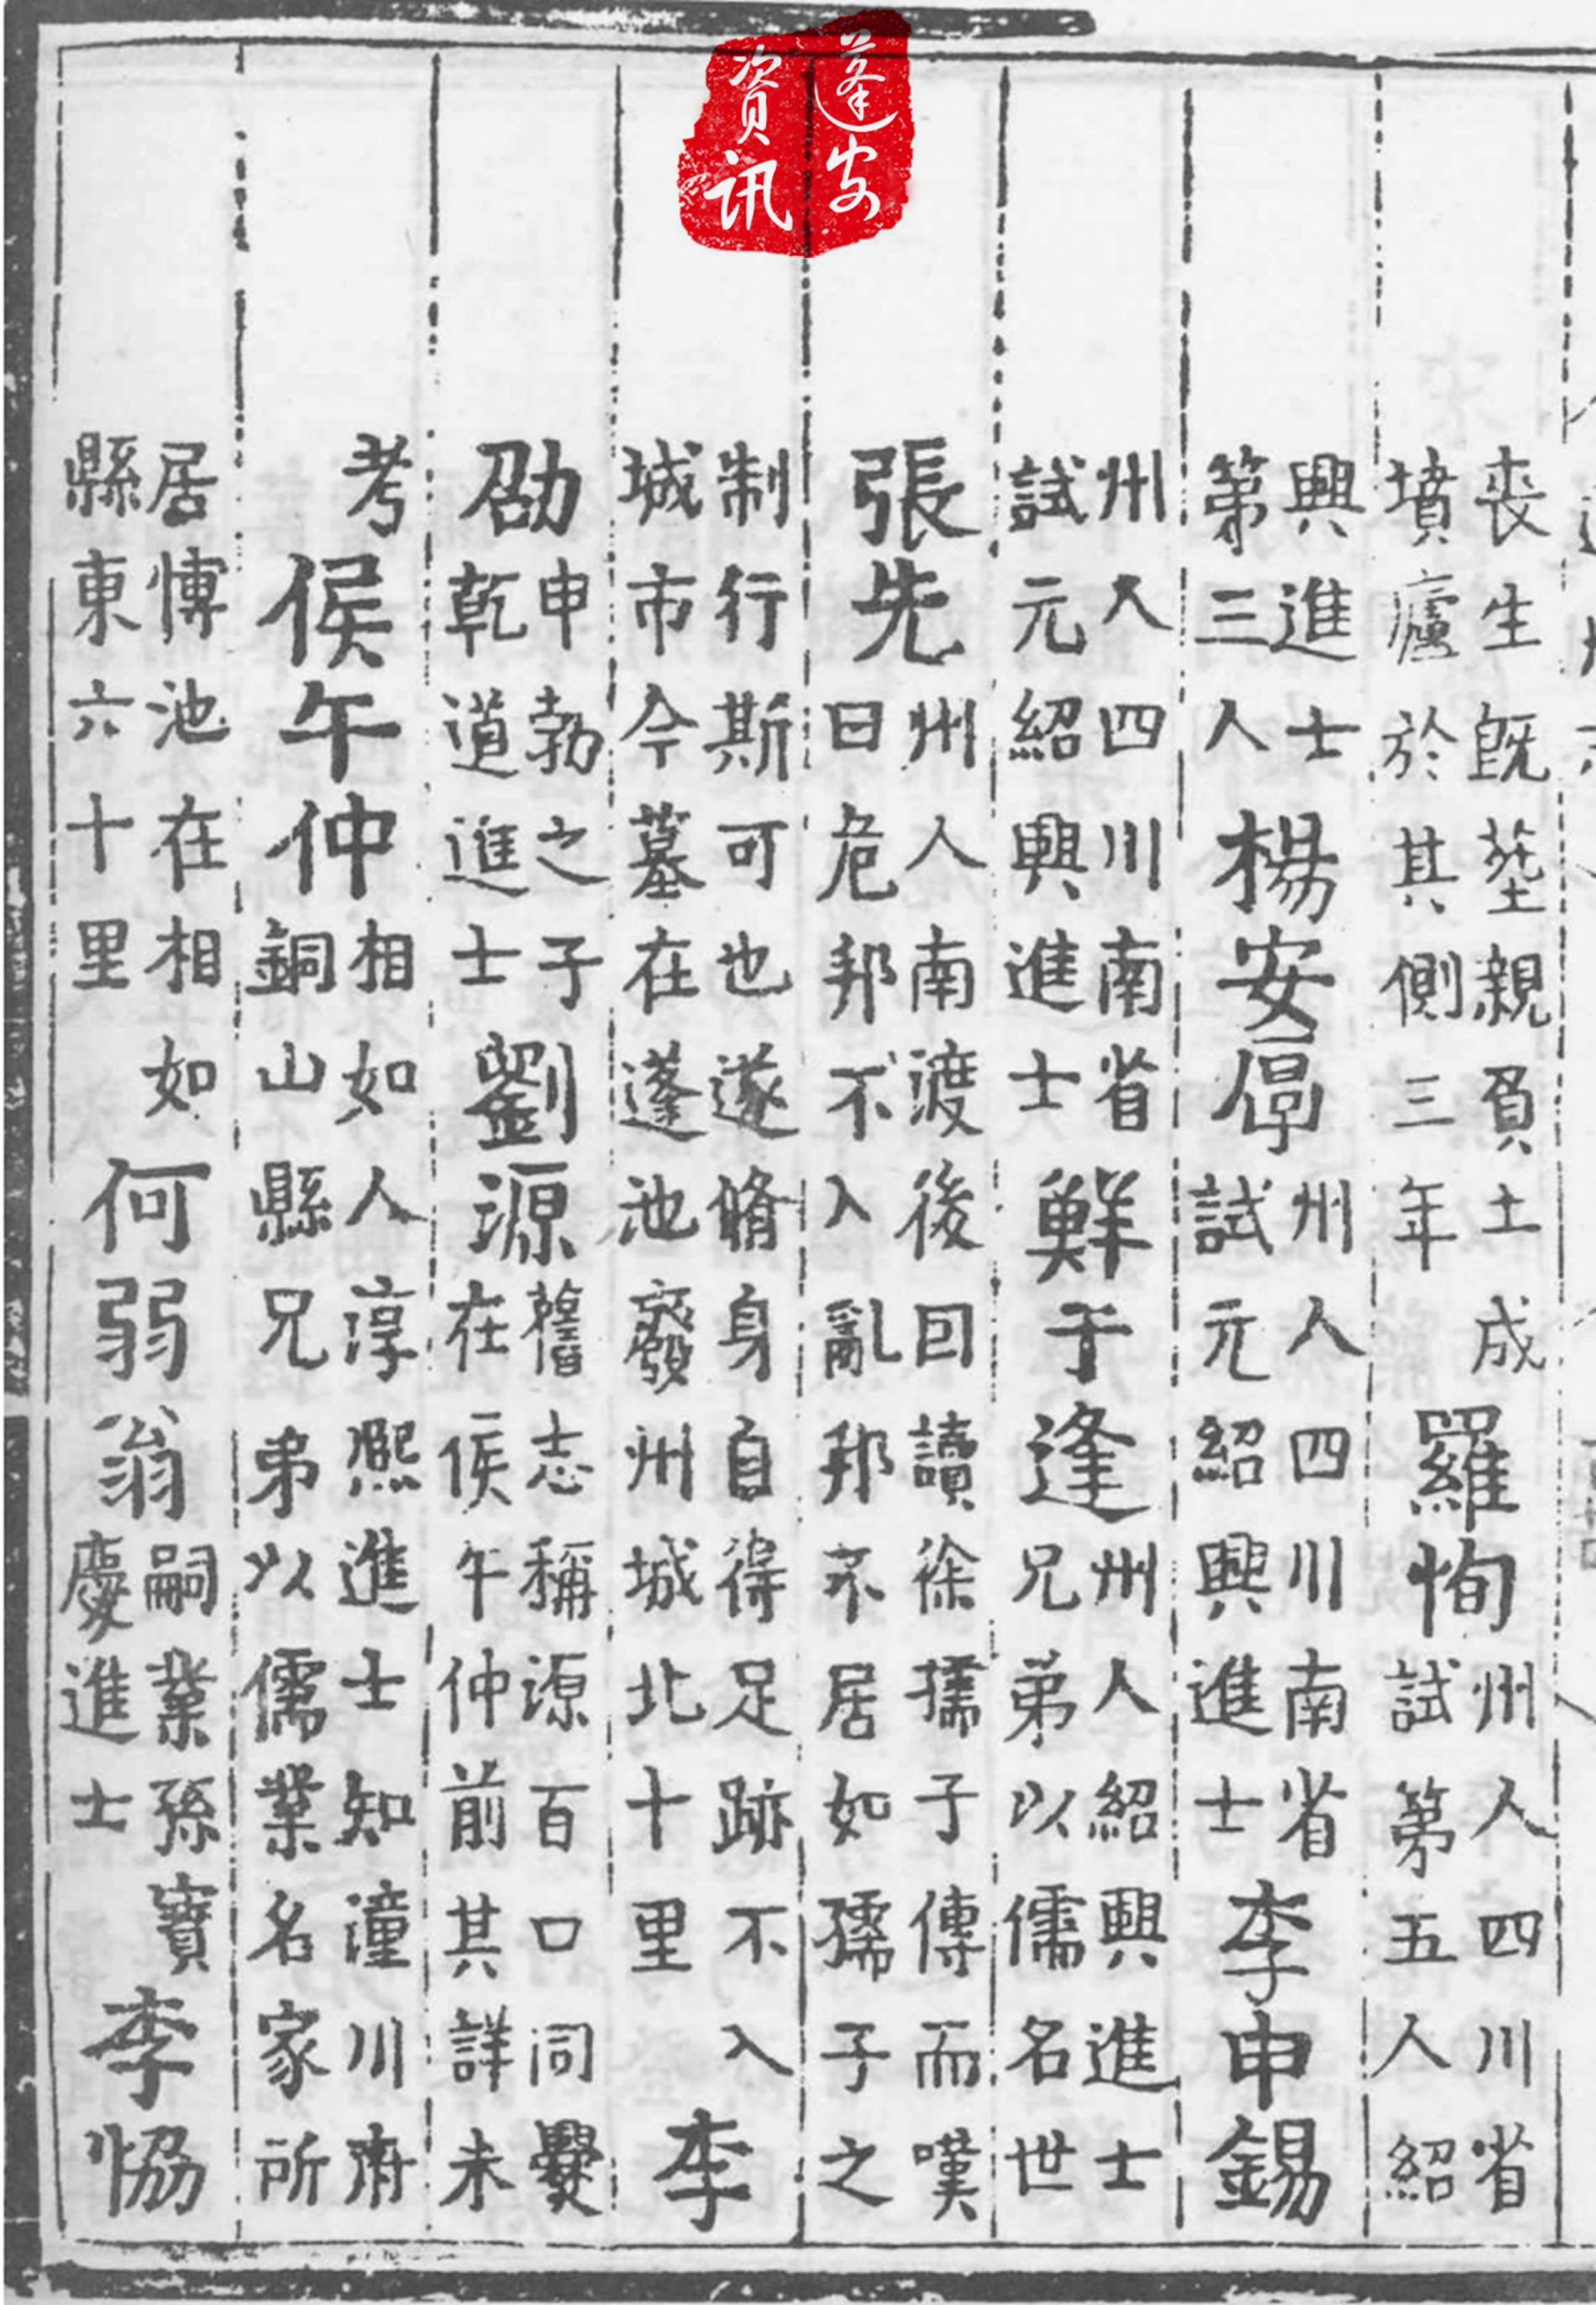 蓬安
资讯
喪生既塟親負土成墳廬於其側三年羅恂州人四川省試第五人紹
興進士第三人楊安停州人四川南省試元紹興進士李申錫
州人四川南省試元紹興進士鮮于逢州人紹興進士兄弟以儒名世
張先州人南渡後回讀徐孺子傳而嘆曰危邦不入亂邦不居如孺子之
制行斯可也遂脩身自得足跡不入城市今墓在蓬池廢州城北十里李
劭申勃之子乾道進士劉源舊志稱源百口同爨在侯午仲前其詳未
考侯午仲相如人淳熙進士知潼川府銅山縣兄弟以儒業名家所
居愽池在相如縣東六十里何弱翁嗣業孫寶慶進士李恊